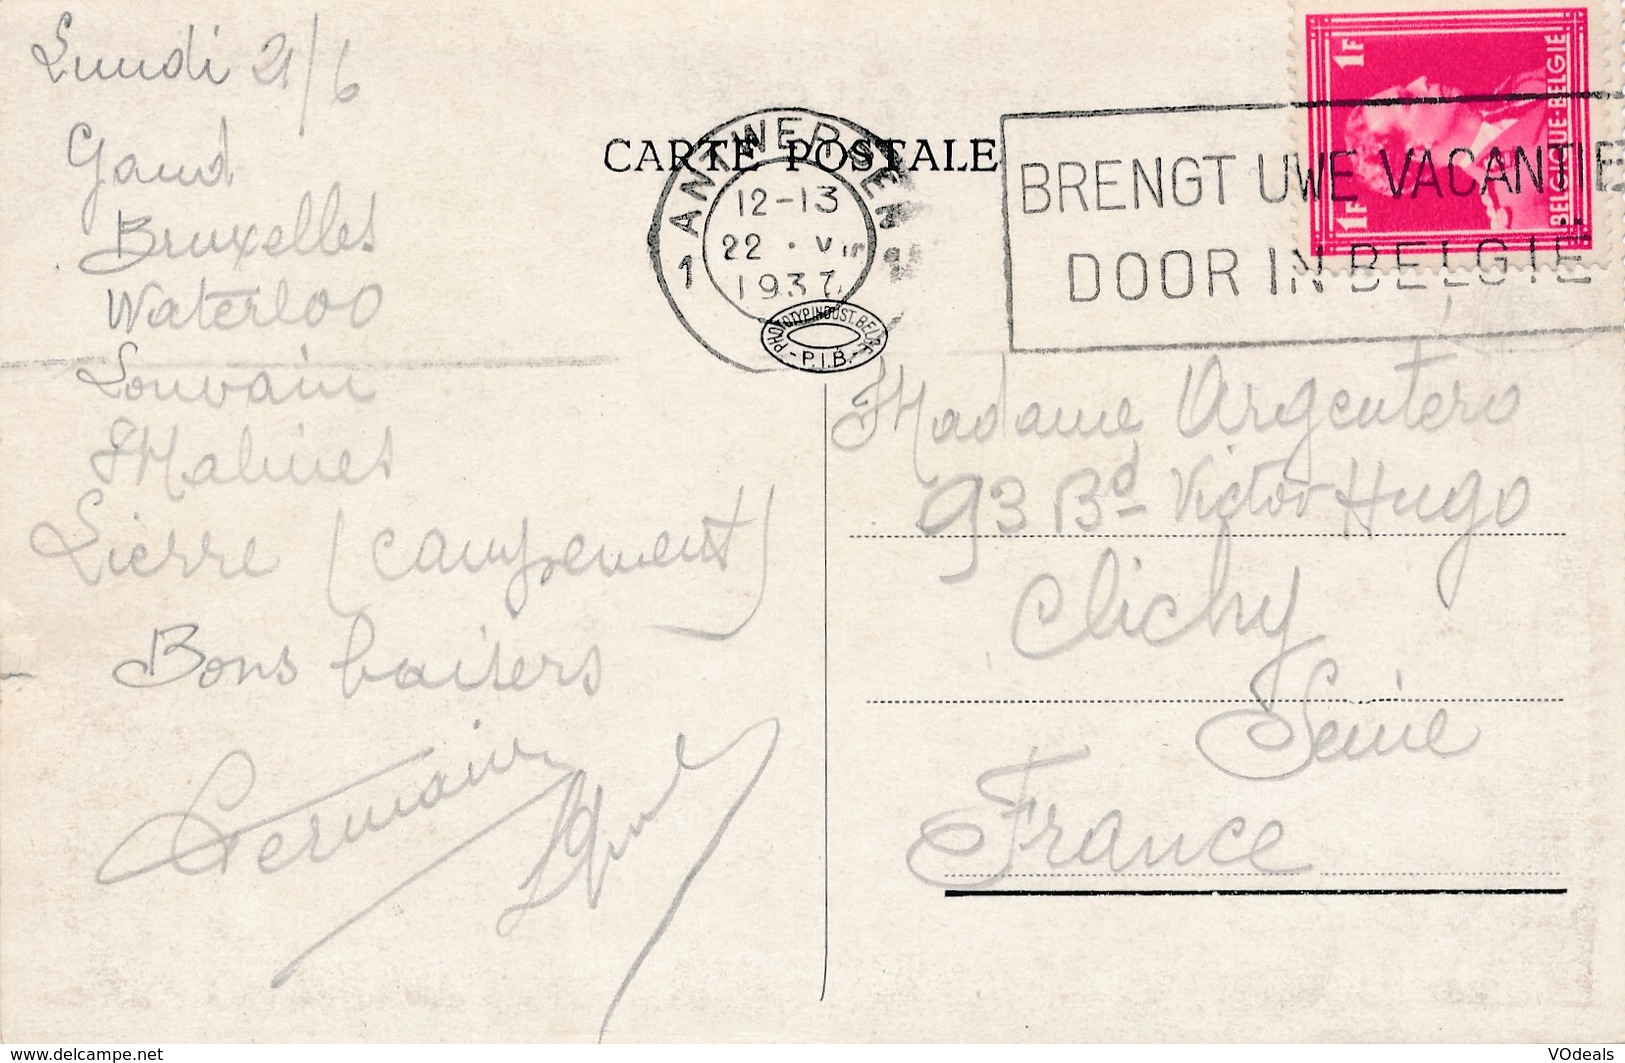 Lundi 21/6
Gand
Bruxelles
Waterloo
Louvain
Malines
Lierre (campement)
Bons baisers
Germain
CARTE POSTALE
1 ANTWERPEN
12-13
22
1937
PHOTOTYP. INDUST. BELGE
- P.I.B. -
BRENGT UWE VACANTIE
DOOR IN BELGIË
1F 1F
BELGIQUE-BELGIE
Madame Argentero
93 Bd Victor Hugo
Clichy
Seine
France
www.delcampe.net
VOdeals